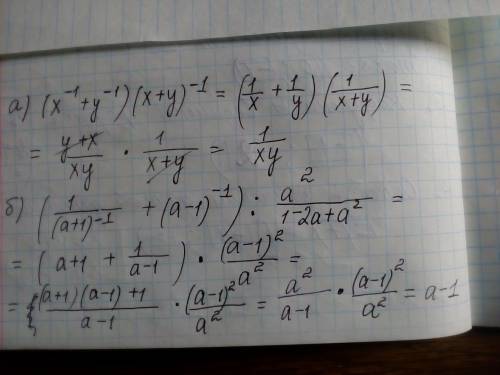 а) (x⁻¹+y⁻¹)(x+y)⁻¹ = (1/x + 1/y)(1/(x+y)) =
= (y+x)/(xy) · 1/(x+y) = 1/(xy)
б) (1/(a+1)⁻¹ + (a-1)⁻¹) : a²/(1-2a+a²) =
= (a+1 + 1/(a-1)) · (a-1)²/a² =
= ((a+1)(a-1)+1)/(a-1) · (a-1)²/a² = a²/(a-1) · (a-1)²/a² = a-1